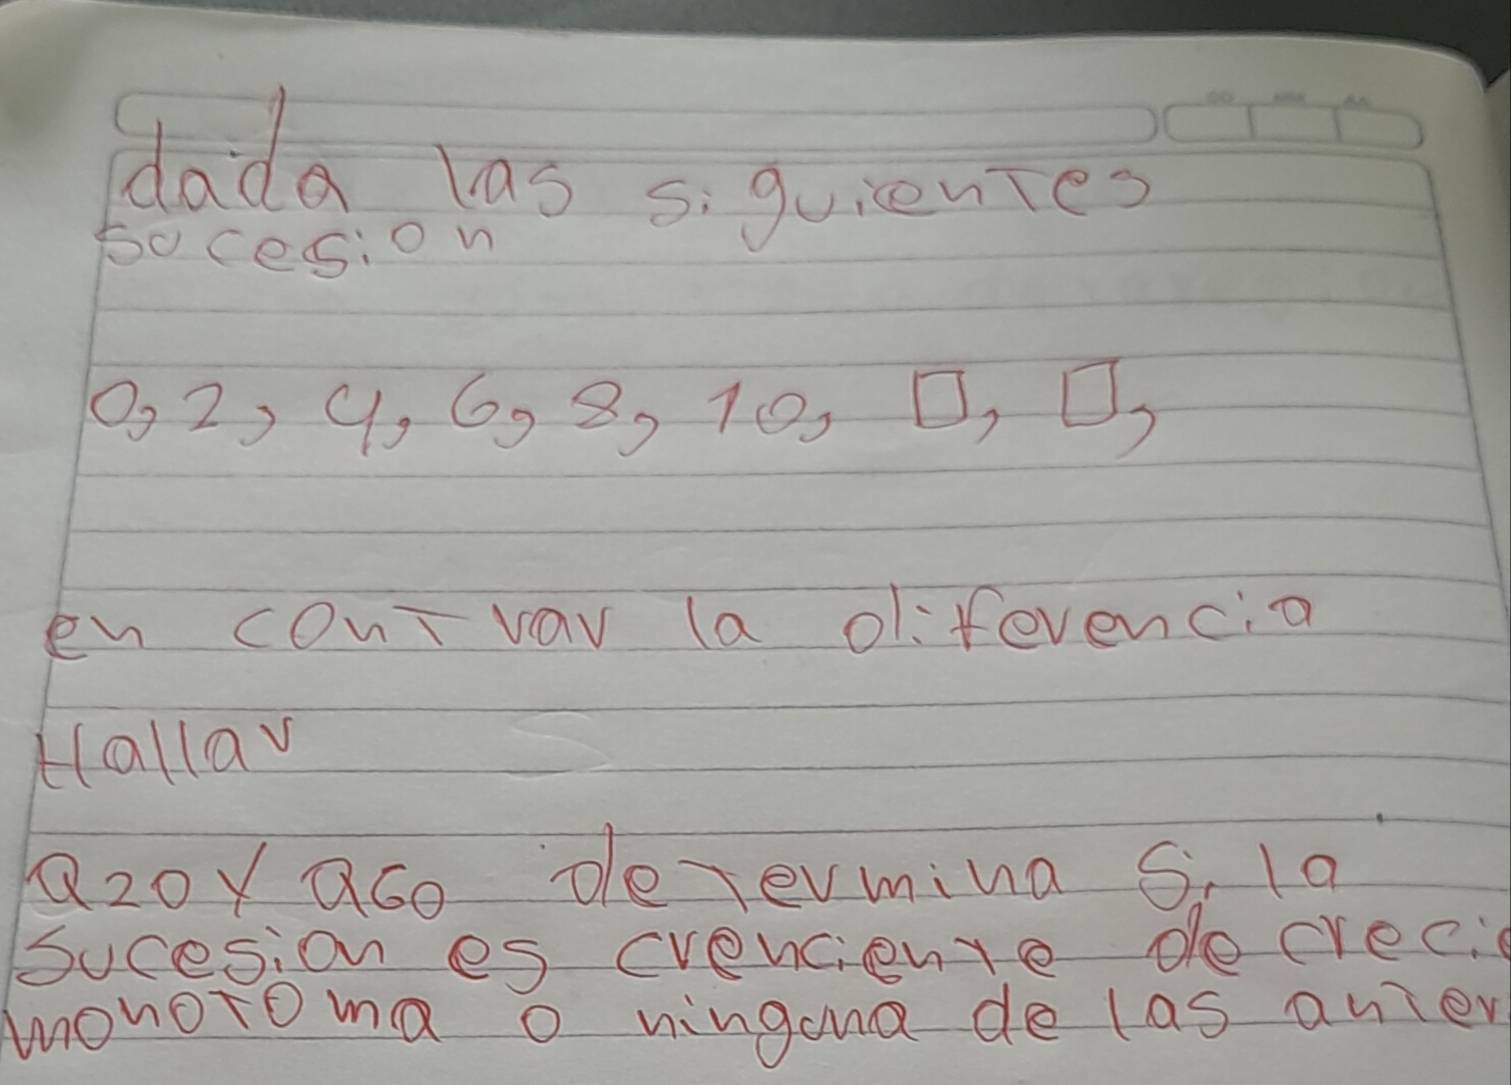 dada las siguientes
sucesion
0, 2, 4, 6, 8, 10, □, □,
encontrar la diferencia
Hallar
a20 y a60 determina si la
sucesion es crenciente decreci
monotoma o ninguna de las anter